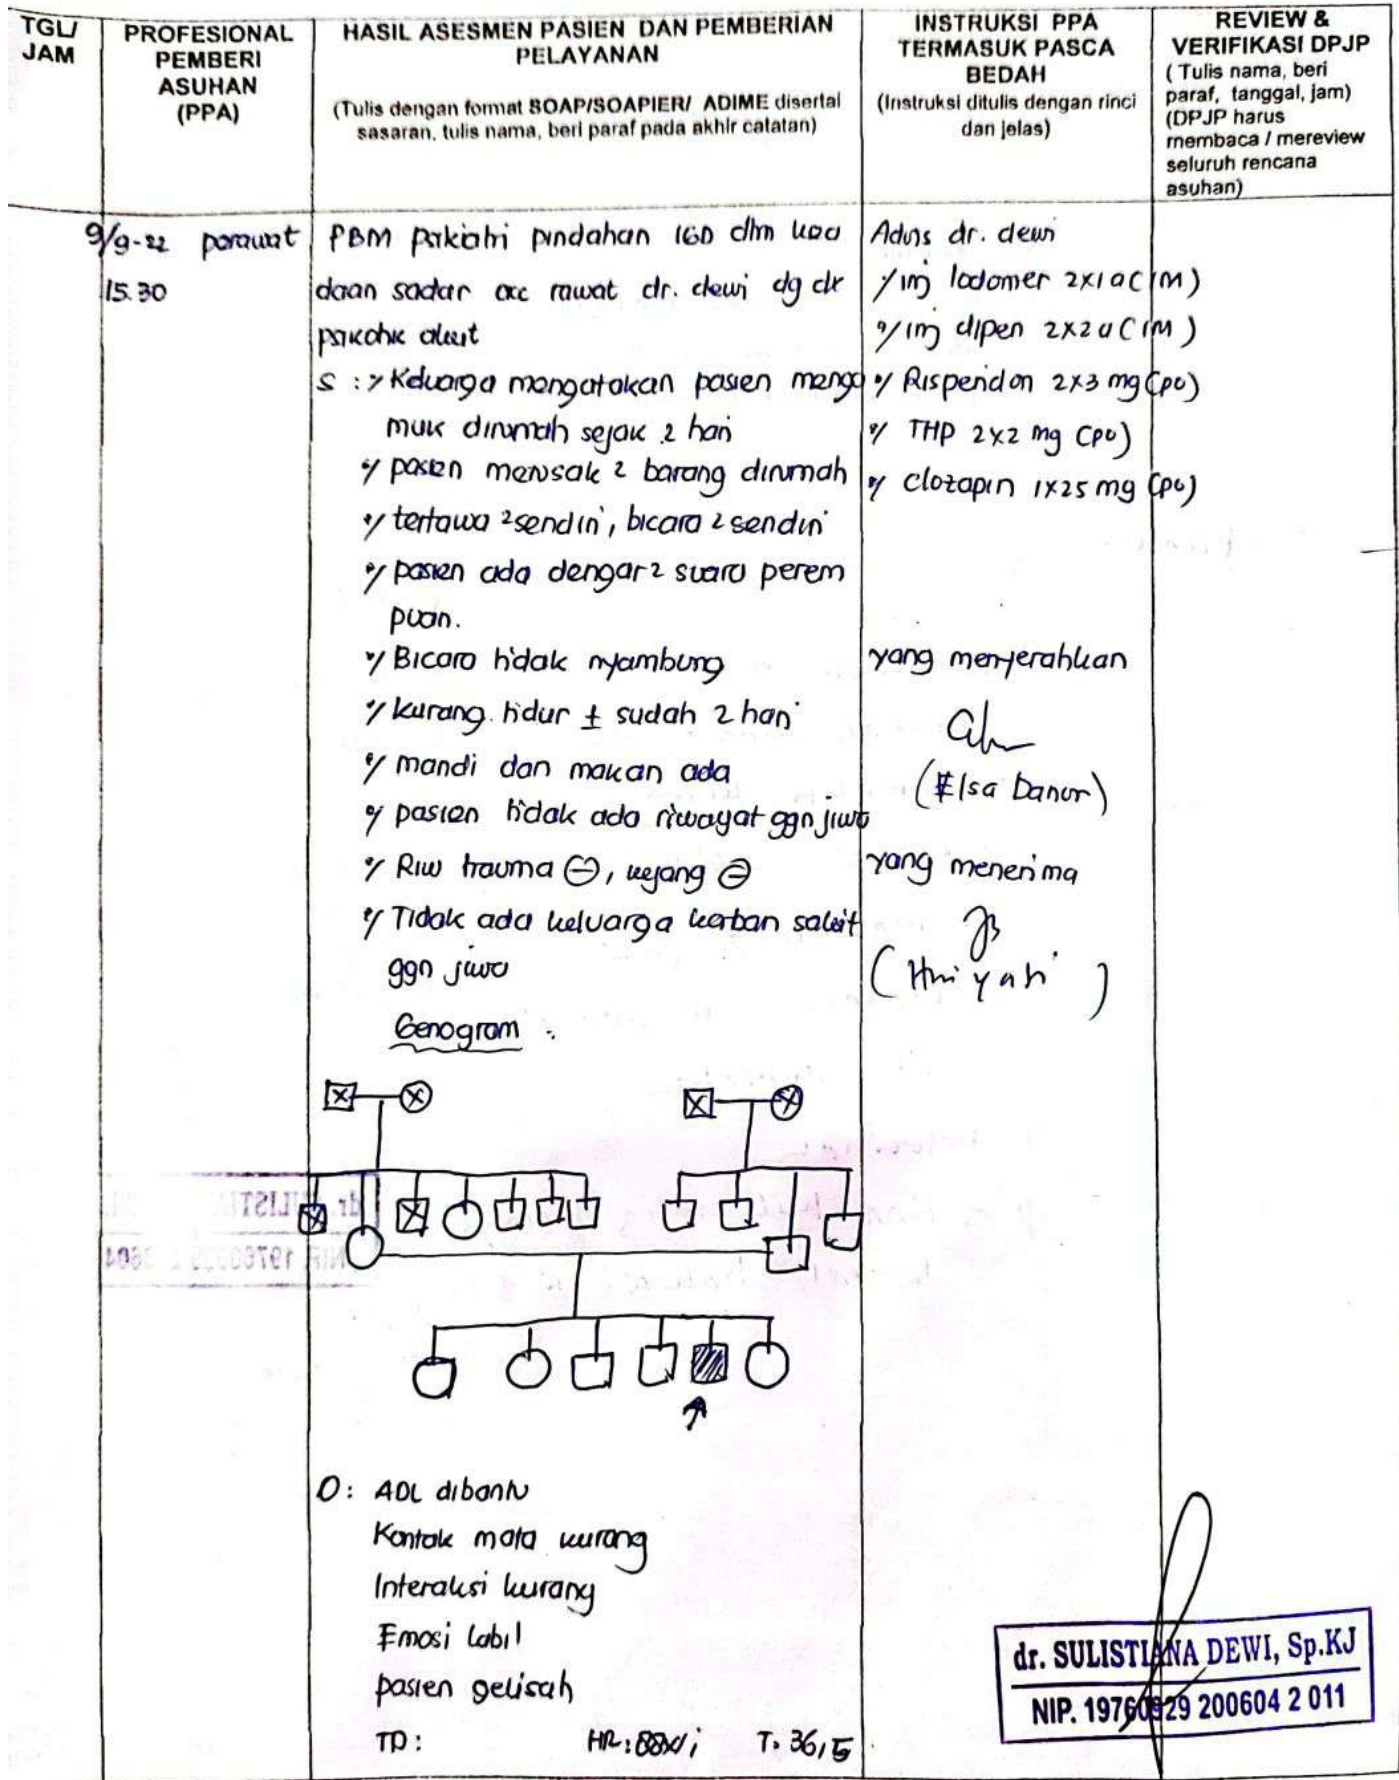 TGL/ JAM
PROFESIONAL PEMBERI ASUHAN (PPA)
HASIL ASESMEN PASIEN DAN PEMBERIAN PELAYANAN
(Tulis dengan format SOAP/SOAPIER/ ADIME disertai sasaran, tulis nama, beri paraf pada akhir catatan)
INSTRUKSI PPA TERMASUK PASCA BEDAH
(Instruksi ditulis dengan rinci dan jelas)
REVIEW & VERIFIKASI DPJP
( Tulis nama, beri paraf, tanggal, jam)
(DPJP harus membaca / mereview seluruh rencana asuhan)
9/9-22 perawat
15.30
PBM psikiatri pindahan IGD dlm kea
daan sadar acc rawat dr. dewi dg dx
psikotik akut
S : Keluarga mengatakan pasien menga
muk dirumah sejak 2 hari
pasien merusak 2 barang dirumah
tertawa 2 sendiri, bicara 2 sendiri
pasien ada dengar 2 suara perem
puan.
Bicara tidak nyambung
kurang tidur ± sudah 2 hari
mandi dan makan ada
pasien tidak ada riwayat ggn jiwa
Riw trauma ⊖, kejang ⊖
Tidak ada keluarga sakit
ggn jiwa
Genogram :
O : ADL dibantu
Kontak mata kurang
Interaksi kurang
Emosi labil
pasien gelisah
TD : HR : 88x/i T. 36,5
Advis dr. dewi
inj lodomer 2x1 a (IM)
inj dipen 2x2 a (IM)
Risperidon 2x3 mg (po)
THP 2x2 mg (po)
Clozapin 1x25 mg (po)
yang menyerahkan
(Elsa Danur)
yang menerima
dr. SULISTIANA DEWI, Sp.KJ
NIP. 19760929 200604 2 011